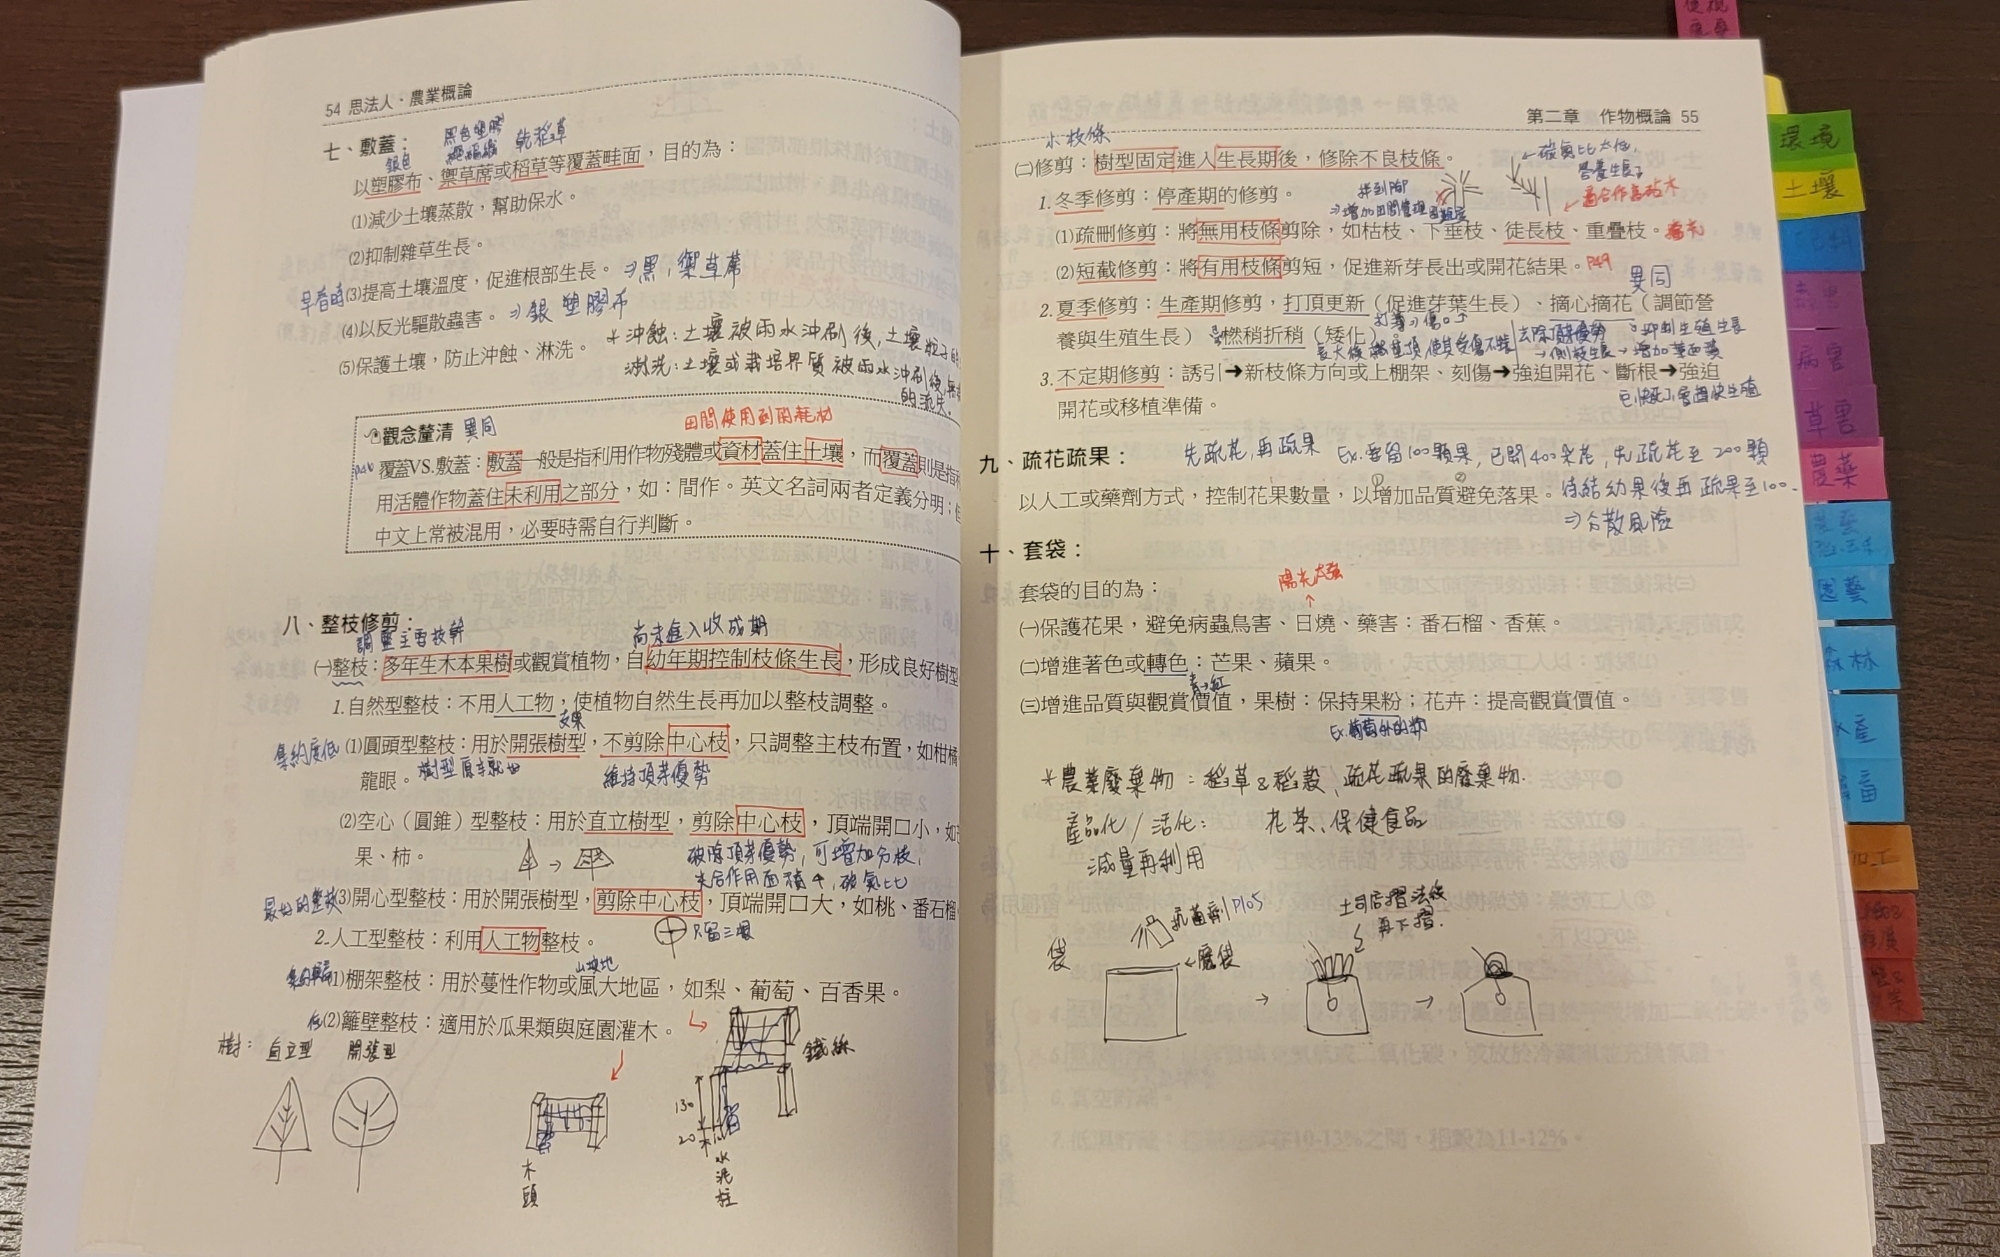 54 思法人．農業概論
七、敷蓋：
黑色塑膠
乾稻草
銀色
以塑膠布、禦草席或稻草等覆蓋畦面，目的為：
(1)減少土壤蒸散，幫助保水。
(2)抑制雜草生長。
早春時
(3)提高土壤溫度，促進根部生長。
⇒黑，禦草席
(4)以反光驅散蟲害。
⇒銀 塑膠布
(5)保護土壤，防止沖蝕、淋洗。
*沖蝕：土壤被雨水沖刷後，土壤粒子的
淋洗：土壤或栽培介質被雨水沖刷後
的流失。
田間使用到的耗材
觀念釐清 異同
覆蓋VS.敷蓋：敷蓋一般是指利用作物殘體或資材蓋住土壤，而覆蓋則是指利
用活體作物蓋住未利用之部分，如：間作。英文名詞兩者定義分明；但
中文上常被混用，必要時需自行判斷。
八、整枝修剪：
調整主要枝幹
尚未進入收成期
(一)整枝：多年生木本果樹或觀賞植物，自幼年期控制枝條生長，形成良好樹型
1.自然型整枝：不用人工物，使植物自然生長再加以整枝調整。
支架
集約度低
(1)圓頭型整枝：用於開張樹型，不剪除中心枝，只調整主枝布置，如柑橘
龍眼。
樹型原本就如此
維持頂芽優勢
(2)空心（圓錐）型整枝：用於直立樹型，剪除中心枝，頂端開口小，如
果、柿。
破除頂芽優勢，可增加分枝，
光合作用面積↑，碳氮比
最好的整枝
(3)開心型整枝：用於開張樹型，剪除中心枝，頂端開口大，如桃、番石榴
只留三根
2.人工型整枝：利用人工物整枝。
山坡地
集約度高
(1)棚架整枝：用於蔓性作物或風大地區，如梨、葡萄、百香果。
低
(2)籬壁整枝：適用於瓜果類與庭園灌木。
樹： 直立型 開張型
鐵絲
130
20
木頭
水泥柱
第二章 作物概論 55
小枝條
(二)修剪：樹型固定進入生長期後，修除不良枝條。
碳氮比太低，
營養生長了
適合作為砧木
1.冬季修剪：停產期的修剪。
⇒增加田間管理困難度
(1)疏刪修剪：將無用枝條剪除，如枯枝、下垂枝、徒長枝、重疊枝。
(2)短截修剪：將有用枝條剪短，促進新芽長出或開花結果。
P49
異同
2.夏季修剪：生產期修剪，打頂更新（促進芽葉生長）、摘心摘花（調節營
養與生殖生長）、燃梢折梢（矮化）
去除頂芽優勢
→側枝生長→增加葉面積
抑制生殖生長
3.不定期修剪：誘引➜新枝條方向或上棚架、刻傷➜強迫開花、斷根➜強迫
開花或移植準備。
已快死了會趕快生殖
九、疏花疏果：
先疏花，再疏果
Ex.要留100顆果，已開400朵花，先疏花至200顆
以人工或藥劑方式，控制花果數量，以增加品質避免落果。
待結幼果後再疏果至100.
⇒分散風險
十、套袋：
套袋的目的為：
陽光太強
(一)保護花果，避免病蟲鳥害、日燒、藥害：番石榴、香蕉。
(二)增進著色或轉色：芒果、蘋果。
青→紅
(三)增進品質與觀賞價值，果樹：保持果粉；花卉：提高觀賞價值。
Ex.葡萄外的粉
*農業廢棄物：稻草&稻穀，疏花疏果的廢棄物.
產品化/活化： 花茶、保健食品
減量再利用
袋
抗菌劑P105
土司店摺法後
再下摺.
環境
土壤
病害
草害
農藥
園藝
森林
水產
畜
加工